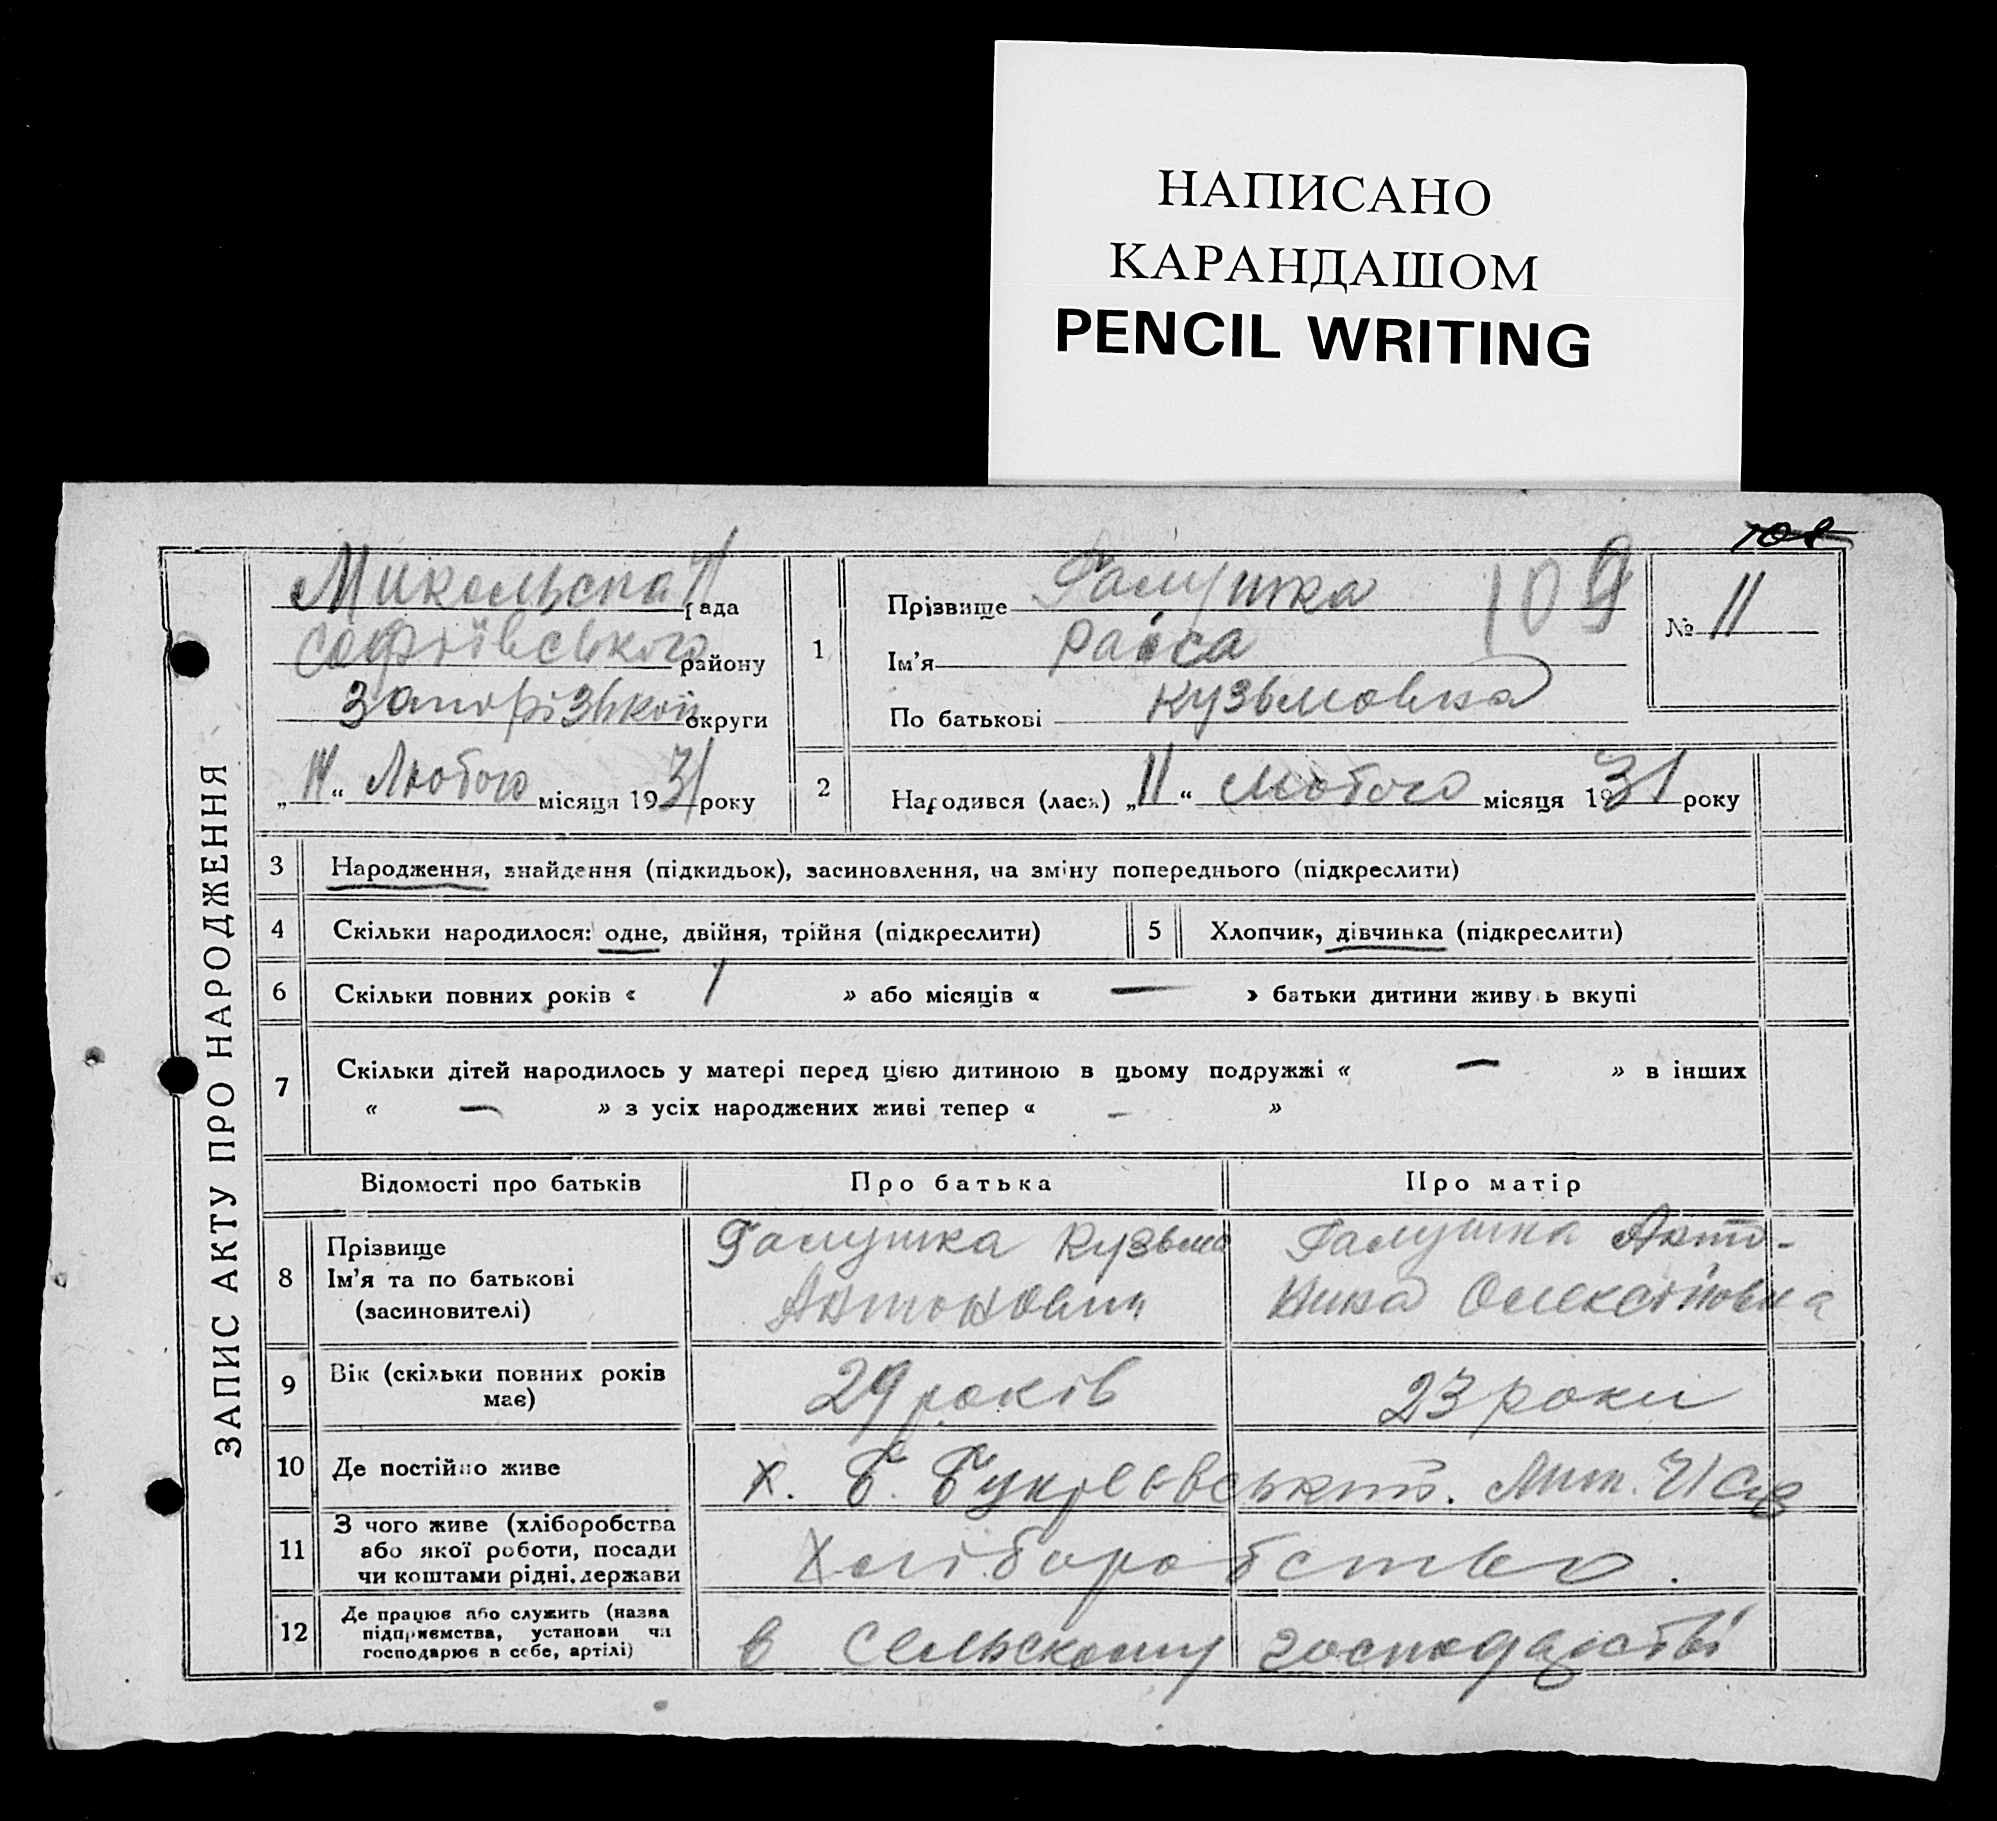 НАПИСАНО
КАРАНДАШОМ
PENCIL WRITING
ЗАПИС АКТУ ПРО НАРОДЖЕННЯ
Микольська рада
Софіївського району
Запорізької округи
„11“ Лютого місяця 1931 року
1
Прізвище Галушка
109
Ім’я Раіса
По батькові Кузьмовна
№ 11
2
Народився (лася) „11“ Лютого місяця 1931 року
3 Народження, знайдення (підкидьок), засиновлення, на зміну попереднього (підкреслити)
4 Скільки народилося: одне, двійня, трійня (підкреслити) 5 Хлопчик, дівчинка (підкреслити)
6 Скільки повних років « 1 » або місяців « — » батьки дитини живуть вкупі
7 Скільки дітей народилось у матері перед цією дитиною в цьому подружжі « — » в інших
« — » з усіх народжених живі тепер « - »
Відомості про батьків Про батька Про матір
8 Прізвище
Ім’я та по батькові
(засиновителі)
Галушка Кузьма
Антонович
Галушка Анто-
нина Олексіївна
9 Вік (скільки повних років
має)
29 років 23 роки
10 Де постійно живе х. Б.
11 З чого живе (хліборобства
або якої роботи, посади
чи коштами рідні, держави
Хліборобство.
12 Де працює або служить (назва
підприємства, установи чи
господарює в себе, артілі)
в Сельскому господарстві